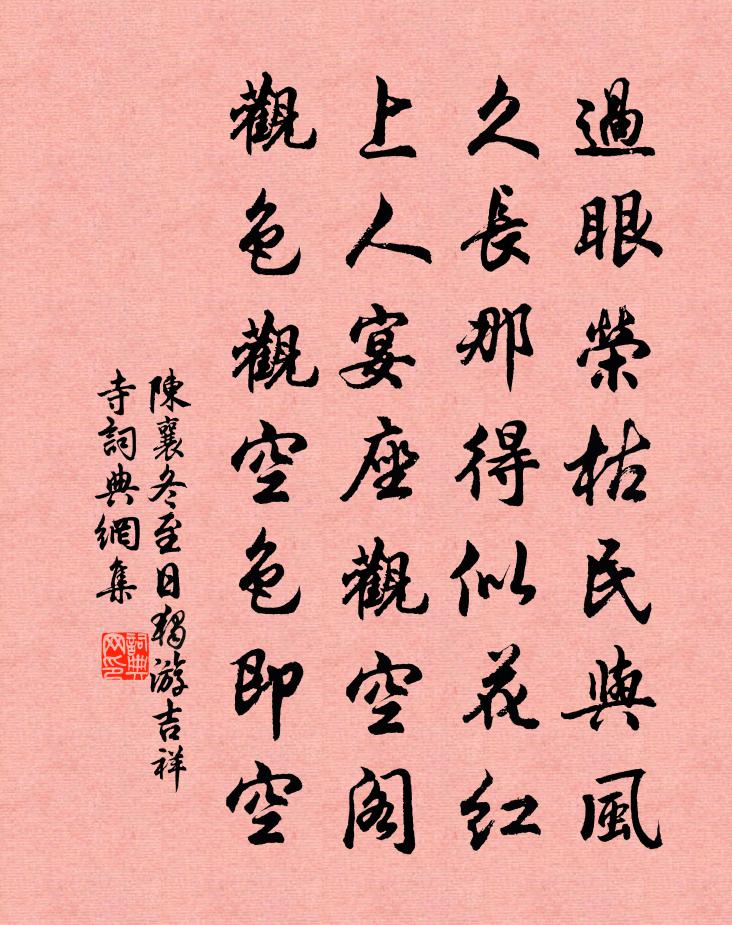 過眼榮枯民與風
久長那得似花紅
上人宴座觀空閣
觀色觀空色即空
陳襄冬至日獨游吉祥
寺詞典網集
詞典網印